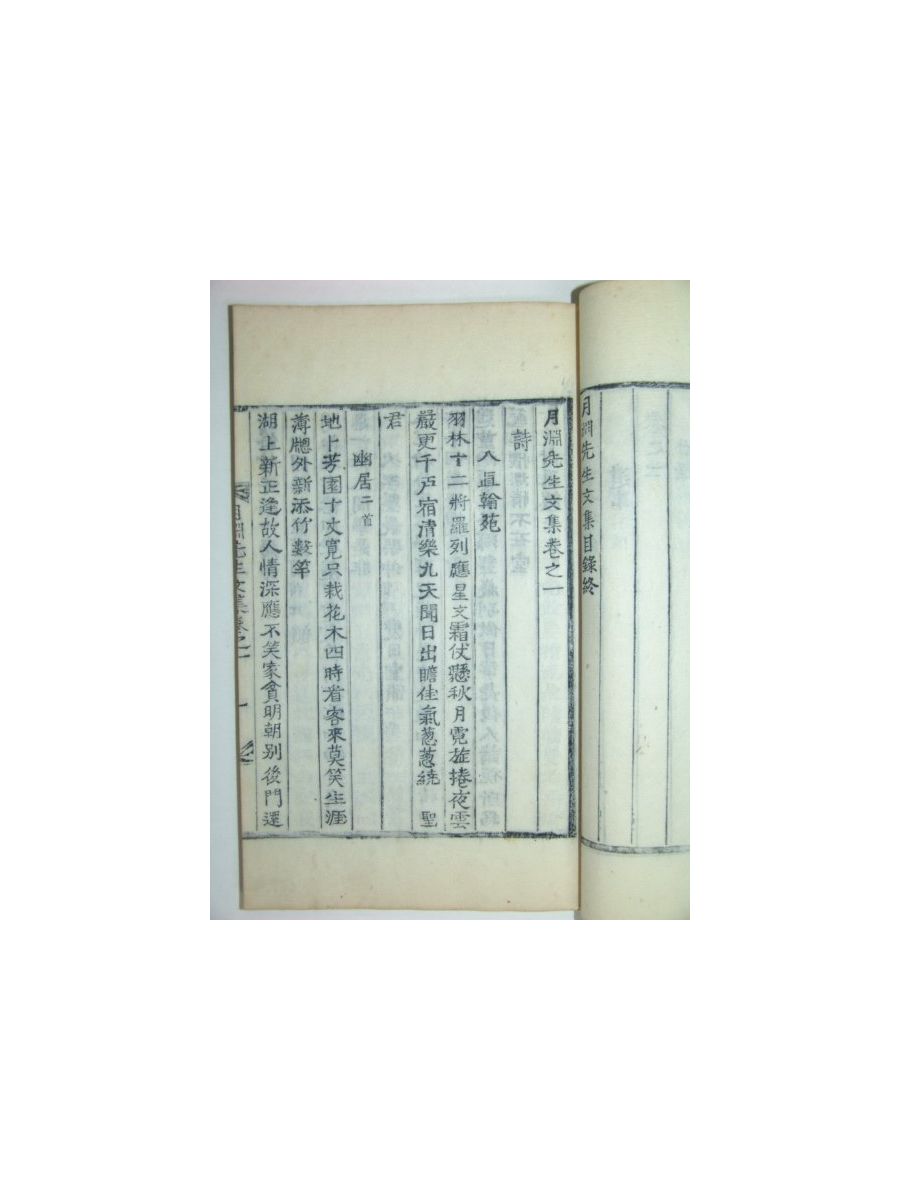 月淵先生文集目錄終
月淵先生文集卷之一
詩
入直翰苑
羽林十二將羅列應星文霜仗懸秋月霓旌捲夜雲
嚴更千戶宿清樂九天聞日出瞻佳氣蔥蔥繞 聖
君
幽居二首
地卜芳園十丈寬只栽花木四時看客來莫笑生涯
薄牕外新添竹數竿
湖上新正逢故人情深應不笑家貧明朝別後門還
月淵先生文集卷之一 一